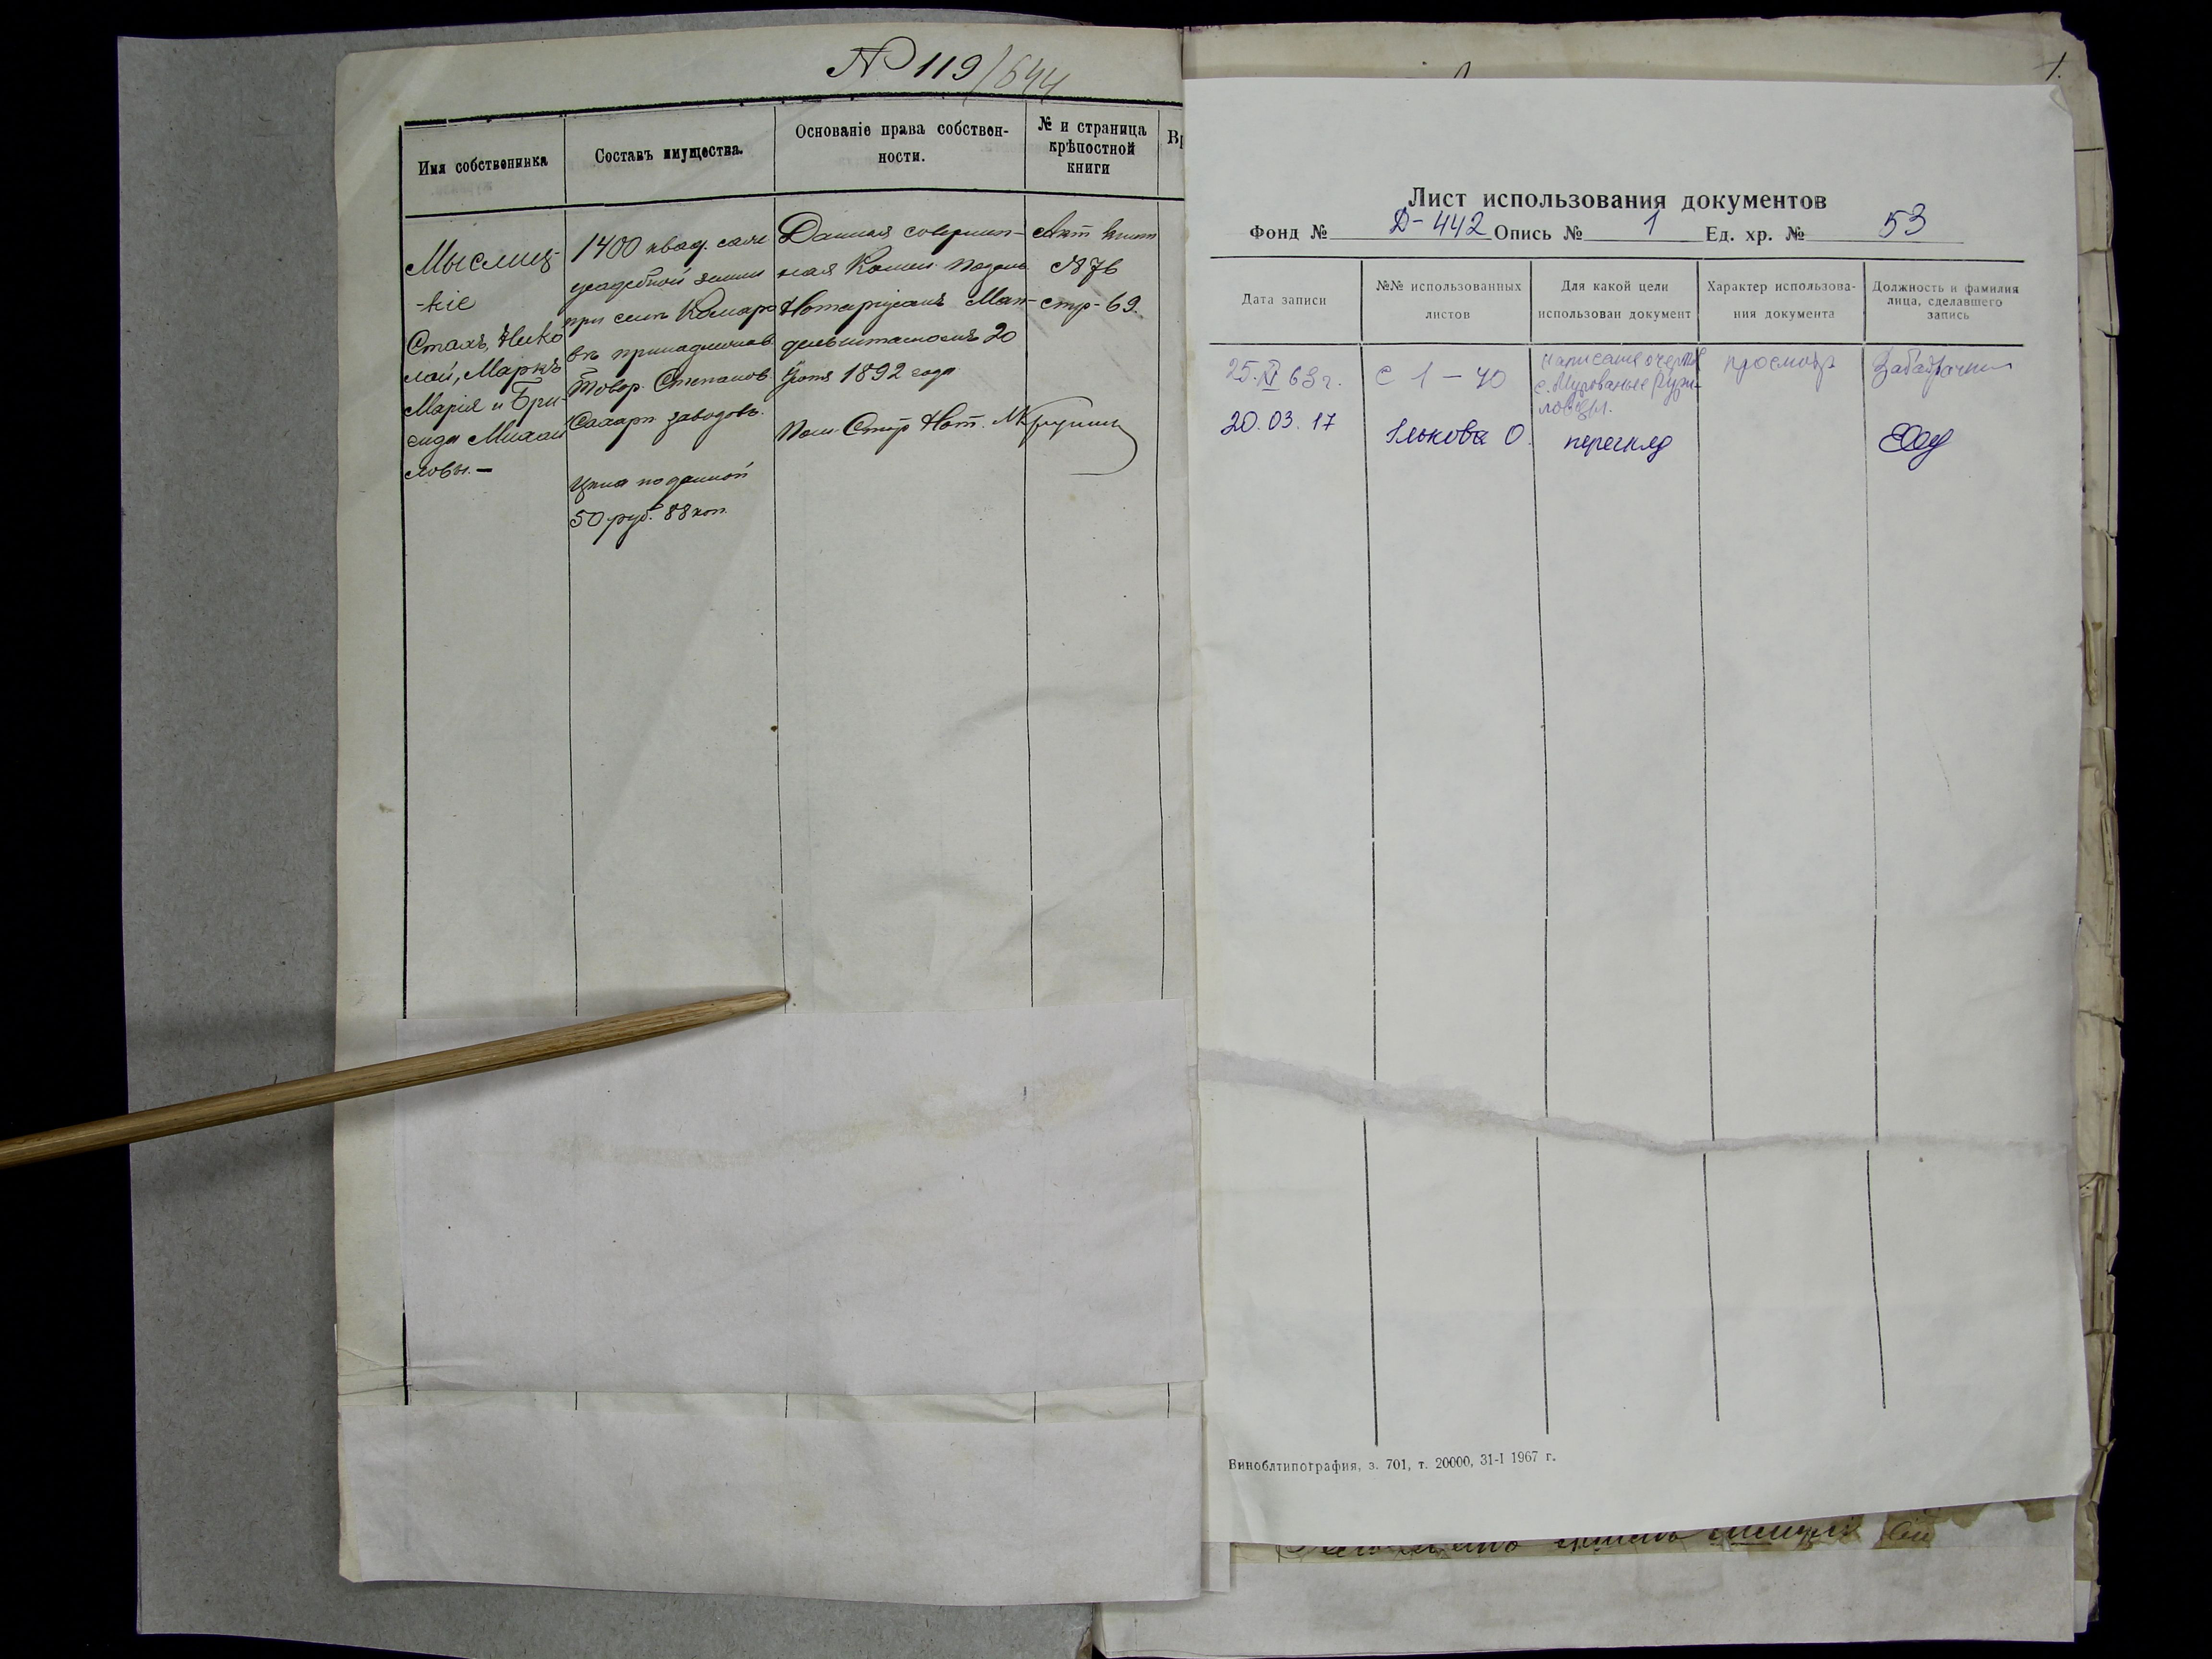 № 119/644
Имя собственника
Составъ имущества.
Основаніе права собствен-
ности.
№ и страница
крѣпостной
книги
Вр
Мыслиц-
-кіе
Стахъ, Нико
лай, Маркъ
Марія и Бри-
гида Михай
ловы.—
1400 квад. саж
усадебной земли
при селѣ Комаро
вѣ принадлежав.
Товар. Степанов.
Сахарн заводовъ.
Цѣна по данной
50 руб. 88 коп.
Данная совершен-
ная
Нотаріусомъ
20
1892 года
Пом. Стар Нот.
Акт книги
№ 76
стр-69.
1.
Лист использования документов
Фонд № Д-442 Опись № 1 Ед. хр. № 53
Дата записи
№№ использованных
листов
Для какой цели
использован документ
Характер использова-
ния документа
Должность и фамилия
лица, сделавшего
запись
25.XI 63 г.
с 1 – 40
Написание очерка
с. Мурованые Кури-
ловцы.
просмотр
20.03.17
Ількова О.
перегляд
Виноблтипография, з. 701, т. 20000, 31-I 1967 г.